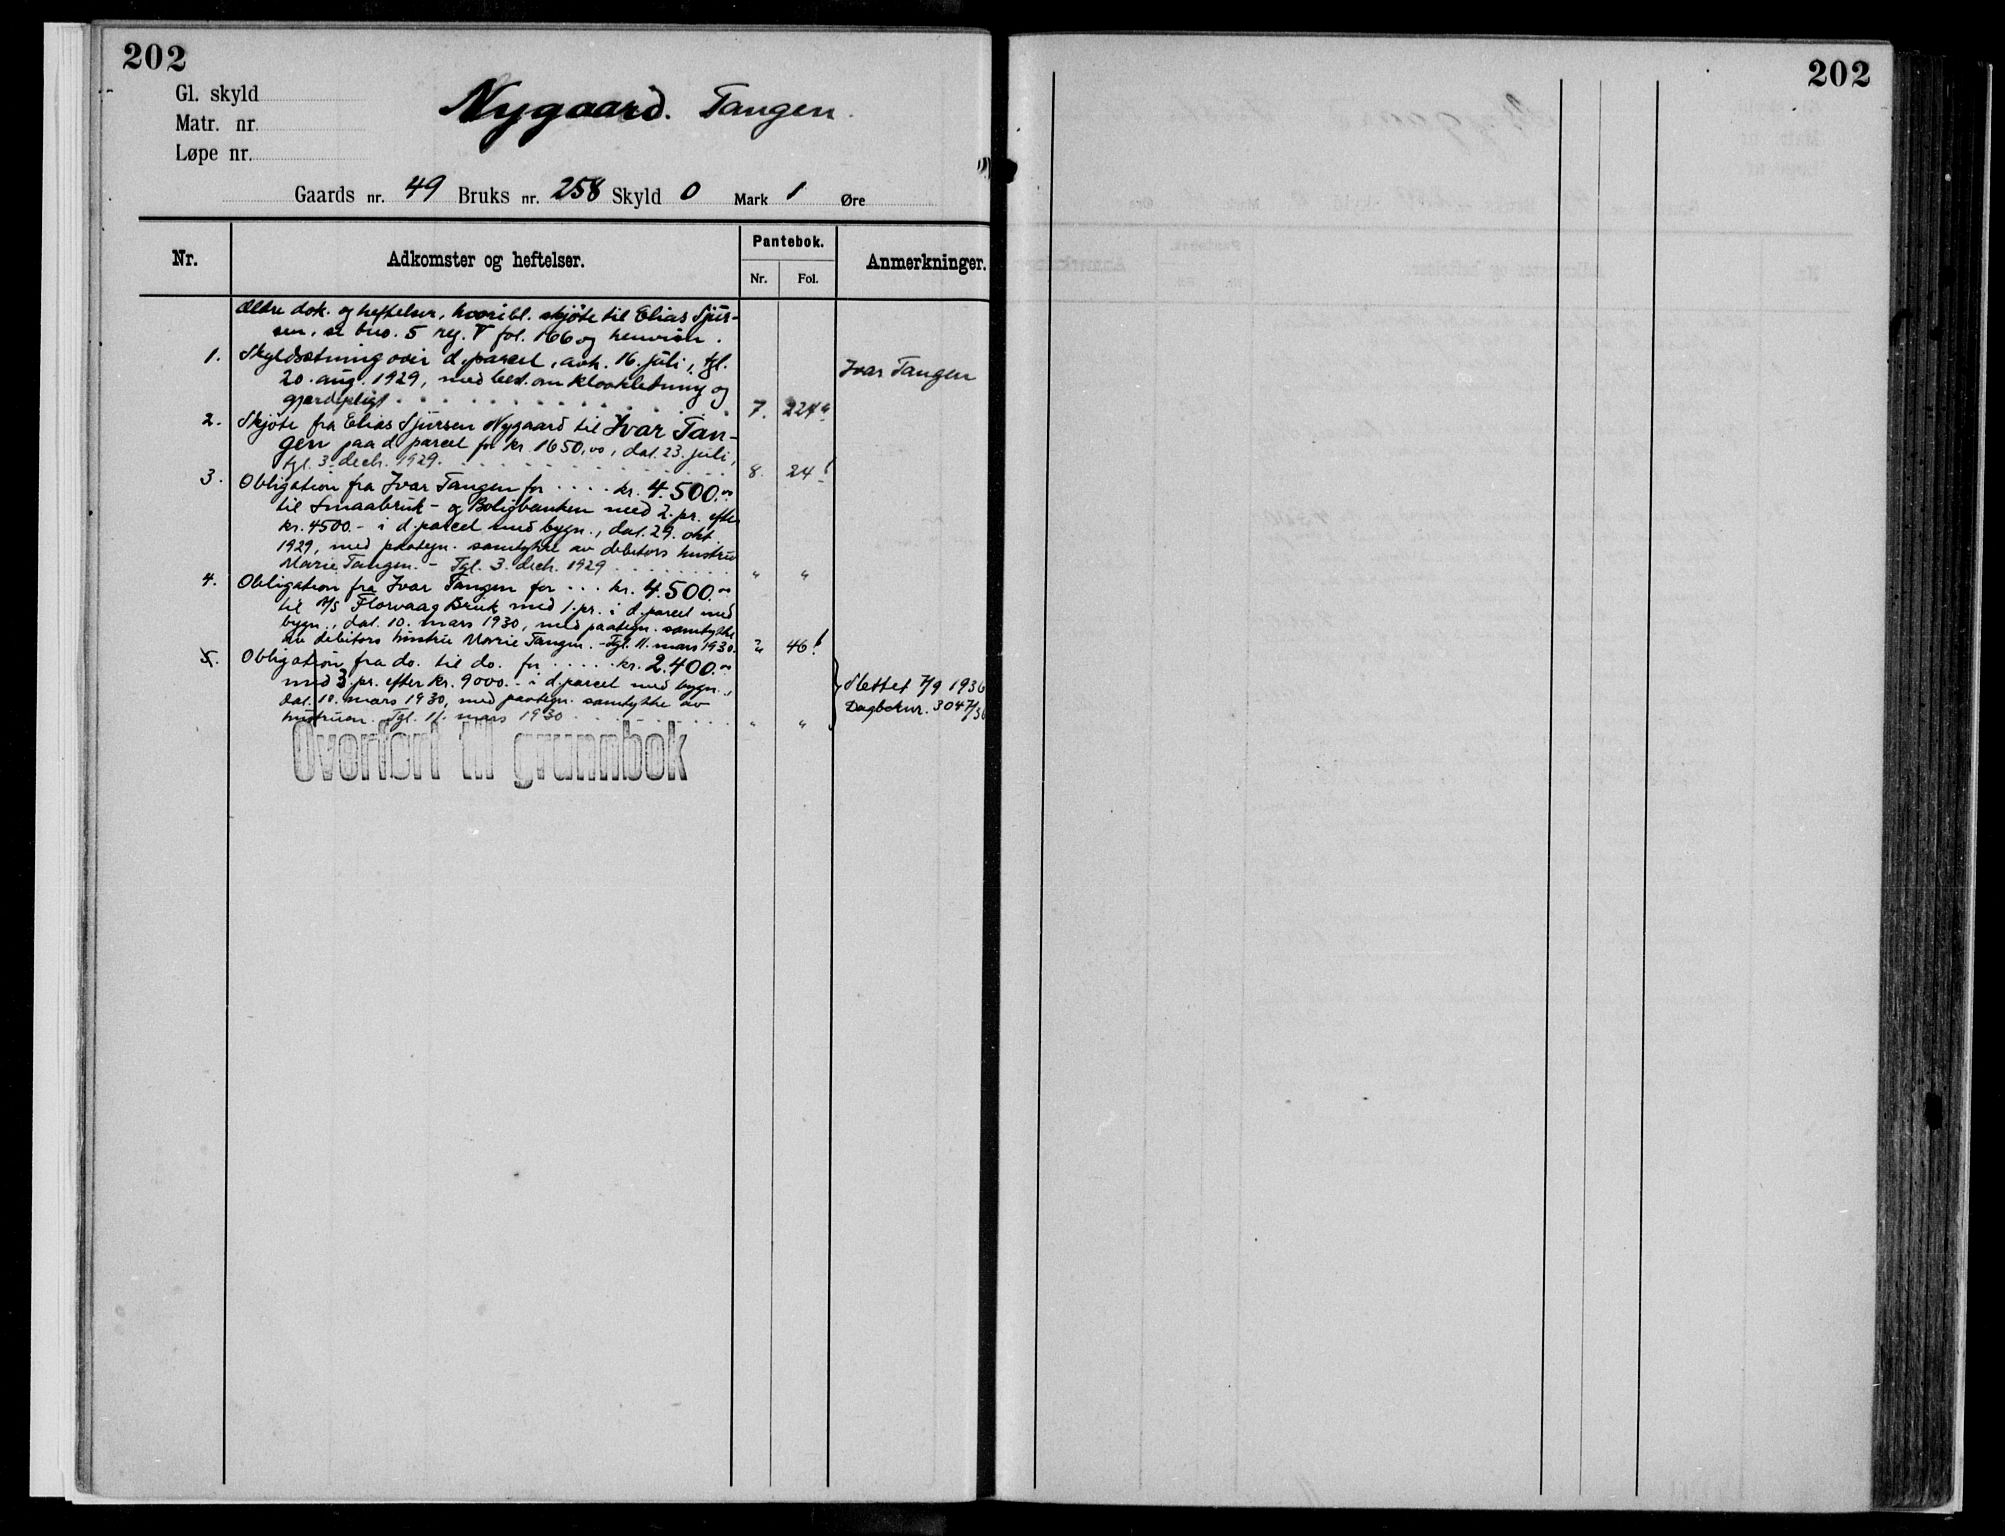 202
Gl. skyld
Matr. nr.
Løpe nr.
Nygaard. Tangen.
Gaards nr. 49 Bruks nr. 258 Skyld 0 Mark 1 Øre
Nr. Adkomster og heftelser. Pantebok. Anmerkninger.
Nr. Fol.
Ældre dok. og heftelser, hvoribl. skjøte til Elias Sjur-
sen, se bno. 5 reg. V fol. 166 og henvisn.
1. Skyldsætning over d. parcel, avh. 16. juli, tgl.
20. aug. 1929, med best. om kloakledning og
gjerdepligt 7. 224a
Ivar Tangen
2. Skjøte fra Elias Sjursen Nygaard til Ivar Tan-
gen paa d. parcel for kr. 1650,00, dat. 23. juli,
tgl. 3. decbr. 1929. 8. 24b
3. Obligation fra Ivar Tangen for kr. 4.500.00
til Smaabruk- og Boligbanken med 2. pr. efter
kr. 4500.- i d. parcel med bygn., dat. 29. okt.
1929, med paategn. samtykke av debitors hustru
Marie Tangen. - Tgl. 3. decbr. 1929 " "
4. Obligation fra Ivar Tangen for kr. 4.500.00
til A/S Florvaag Bruk med 1. pr. i d. parcel med
bygn., dat. 10. mars 1930, med paategn. samtykke
av debitors hustru Marie Tangen. - Tgl. 11. mars 1930. " 46b
5. Obligation fra do. til do. for kr. 2.400.00
med 3. pr. efter kr. 9000.- i d. parcel med bygn.,
dat. 10. mars 1930, med paategn. samtykke av
hustruen. Tgl. 11. mars 1930 " "
Slettet 7/9 1936
Dagboknr. 3047/36
Overført til grunnbok
202